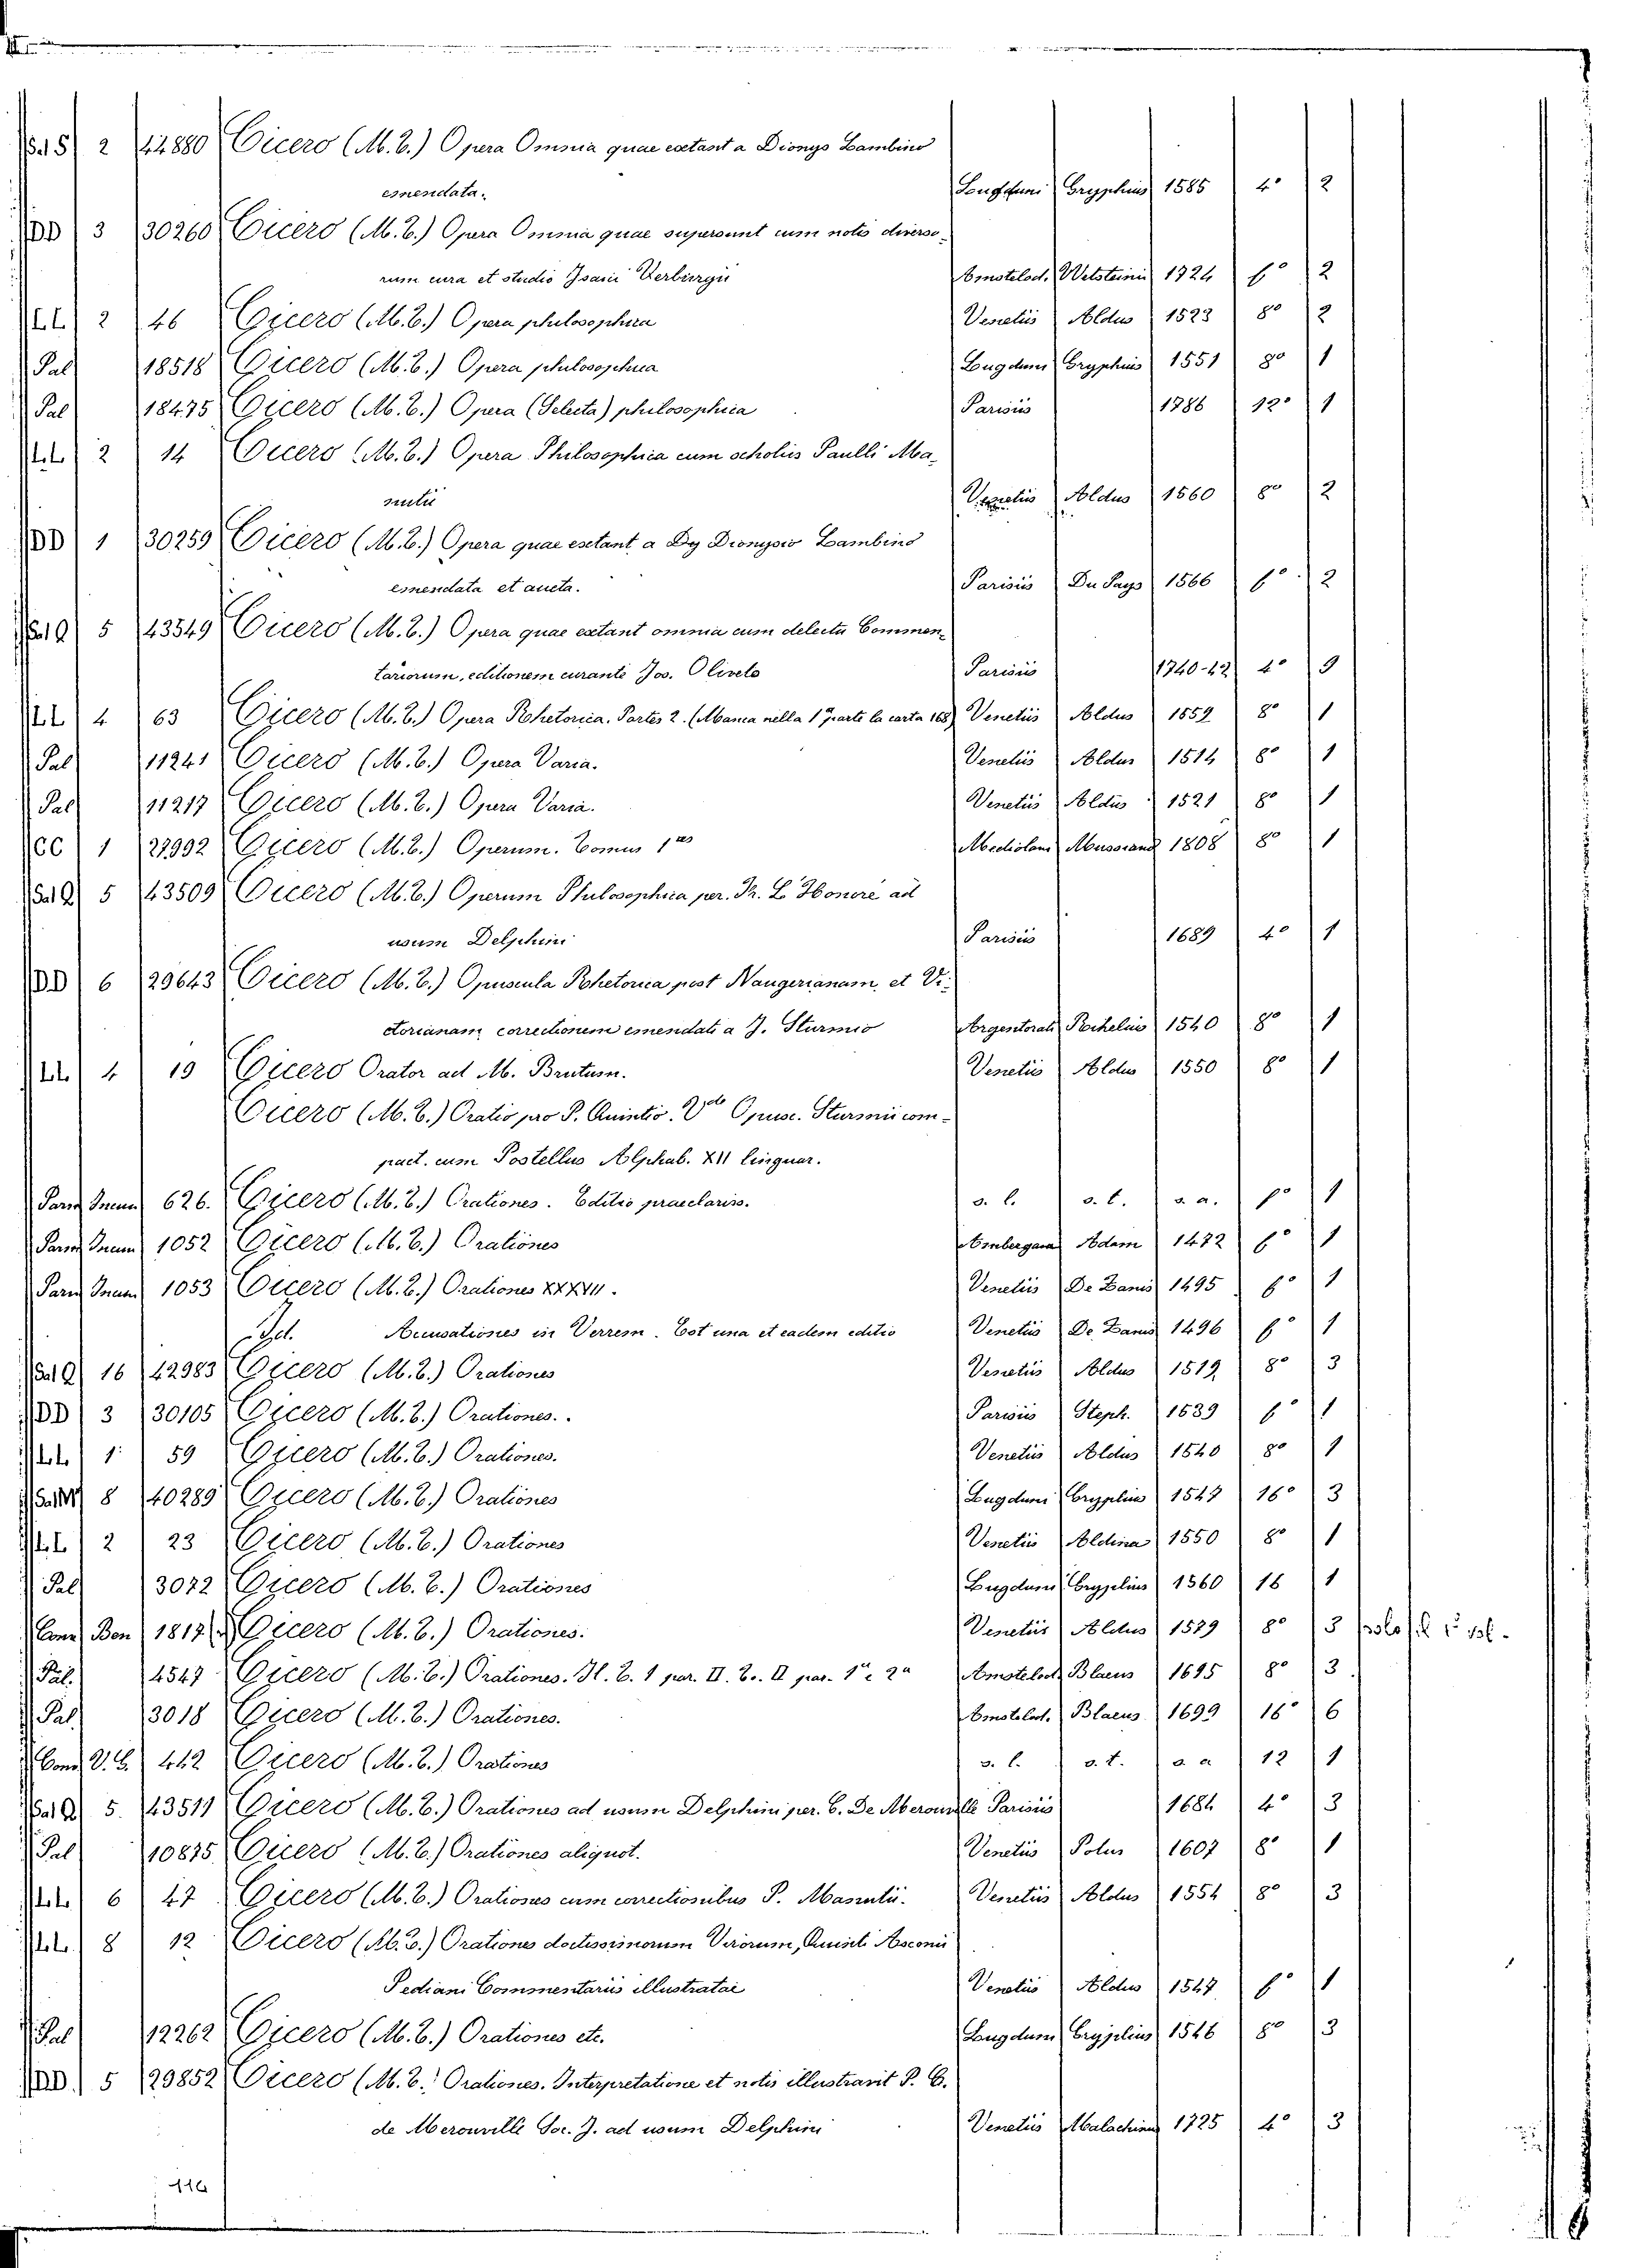 Sal 5 2 44880 Cicero (M. T.) Opera Omnia quae extant a Dionys Lambino
emendata. Lugduni Gryphius 1585 4° 2
DD 3 30260 Cicero (M. T.) Opera Omnia quae supersunt cum notis diverso-
rum cura et studio Isacii Verburgii Amstelod. Wetsteinii 1724 f° 2
LL 2 46 Cicero (M. T.) Opera philosophica Venetiis Aldus 1523 8° 2
Pal 18518 Cicero (M. T.) Opera philosophica Lugduni Gryphius 1551 8° 1
Pal 18475 Cicero (M. T.) Opera (Selecta) philosophica Parisiis 1786 12° 1
LL 2 14 Cicero (M. T.) Opera Philosophica cum scholiis Paulli Ma-
nutii Venetiis Aldus 1560 8° 2
DD 1 30259 Cicero (M. T.) Opera quae extant a Dy Dionysio Lambino
emendata et aucta. Parisiis Du Pays 1566 f° 2
Sal Q 5 43549 Cicero (M. T.) Opera quae extant omnia cum delectu Commen-
tariorum, editionem curante Jos. Oliveto Parisiis 1740-42 4° 9
LL 4 63 Cicero (M. T.) Opera Rhetorica. Partes 2. (Manca nella 1ª parte la carta 168) Venetiis Aldus 1559 8° 1
Pal 11241 Cicero (M. T.) Opera Varia. Venetiis Aldus 1514 8° 1
Pal 11217 Cicero (M. T.) Opera Varia. Venetiis Aldus 1521 8° 1
CC 1 27992 Cicero (M. T.) Operum. Tomus 1us Mediolani Mussiand 1808 8° 1
Sal Q 5 43509 Cicero (M. T.) Operum Philosophica per. Fr. L'Honoré ad
usum Delphini Parisiis 1689 4° 1
DD 6 29643 Cicero (M. T.) Opuscula Rhetorica post Naugerianam, et Vi-
ctorianam correctionem emendata a J. Sturmio Argentorati Rihelius 1540 8° 1
LL 4 19 Cicero Orator ad M. Brutum. Venetiis Aldus 1550 8° 1
Cicero (M. T.) Oratio pro P. Quintio. Vde Opusc. Sturmii com-
pact. cum Postellus Alphab. XII linguar.
Parm Incun 626. Cicero (M. T.) Orationes. Editio praeclariss. s. l. s. t. s. a. f° 1
Parm Incun 1052 Cicero (M. T.) Orationes Ambergau Adam 1472 f° 1
Parm Incun 1053 Cicero (M. T.) Orationes XXXVII. Venetiis De Zanis 1495 f° 1
Id. Accusationes in Verrem. Est una et eadem editio Venetiis De Zanis 1496 f° 1
Sal Q 16 42983 Cicero (M. T.) Orationes Venetiis Aldus 1519 8° 3
DD 3 30105 Cicero (M. T.) Orationes. Parisiis Steph. 1539 f° 1
LL 1 59 Cicero (M. T.) Orationes. Venetiis Aldus 1540 8° 1
Sal M 8 40289 Cicero (M. T.) Orationes Lugduni Gryphius 1547 16° 3
LL 2 23 Cicero (M. T.) Orationes Venetiis Aldina 1550 8° 1
Pal 3072 Cicero (M. T.) Orationes Lugduni Gryphius 1560 16 1
Conv Bon 1817 Cicero (M. T.) Orationes. Venetiis Aldus 1579 8° 3 solo il 1° vol.
Pal. 4547 Cicero (M. T.) Orationes. Il. T. 1 par. II. T. II par. 1ª e 2ª Amstelod. Blaeus 1695 8° 3
Pal. 3018 Cicero (M. T.) Orationes. Amstelod. Blaeus 1699 16° 6
Conv V. E. 442 Cicero (M. T.) Orationes s. l. s. t. s. a. 12 1
Sal Q 5. 43511 Cicero (M. T.) Orationes ad usum Delphini per. C. De Merouville Parisiis 1684 4° 3
Pal 10875 Cicero (M. T.) Orationes aliquot. Venetiis Polus 1607 8° 1
LL 6 47 Cicero (M. T.) Orationes cum correctionibus P. Manutii. Venetiis Aldus 1554 8° 3
LL 8 12 Cicero (M. T.) Orationes doctissimorum Virorum, Quinti Asconii
Pediani Commentariis illustratae Venetiis Aldus 1547 f° 1
Pal 12262 Cicero (M. T.) Orationes etc. Lugduni Gryphius 1546 8° 3
DD 5 29852 Cicero (M. T.) Orationes. Interpretatione et notis illustravit P. C.
de Merouville Soc. J. ad usum Delphini Venetiis Malachinus 1725 4° 3